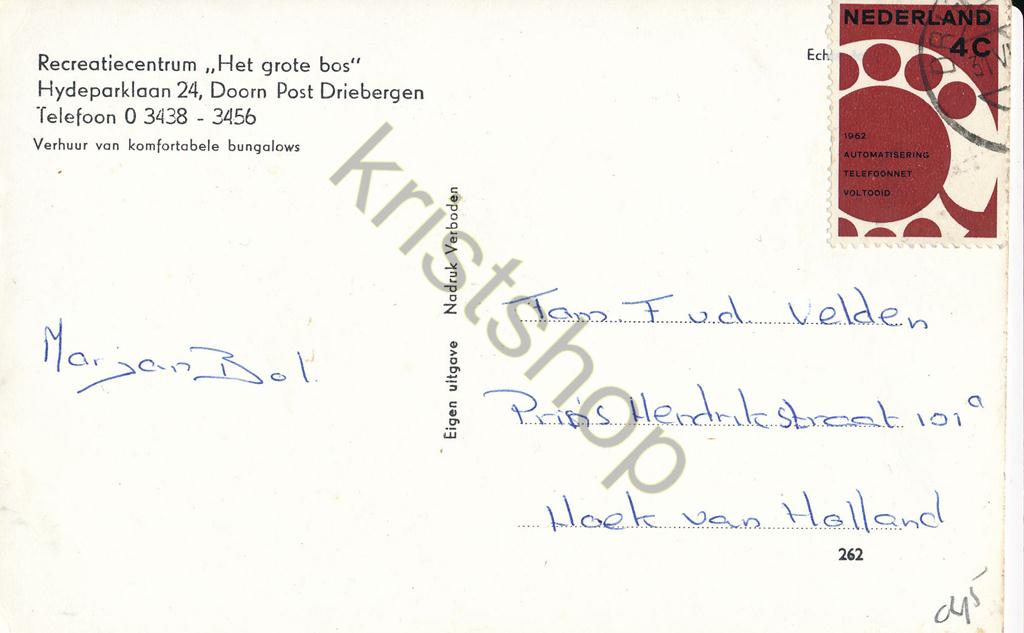 Recreatiecentrum „Het grote bos“
Hydeparklaan 24, Doorn Post Driebergen
Telefoon 0 3438 - 3456
Verhuur van komfortabele bungalows
Marjan Bol.
Eigen uitgave Nadruk Verboden
Ech
NEDERLAND
4C
1962
AUTOMATISERING
TELEFOONNET
VOLTOOID
Fam. F v.d. Velden
Prins Hendrikstraat 101a
Hoek van Holland
262
kristshop